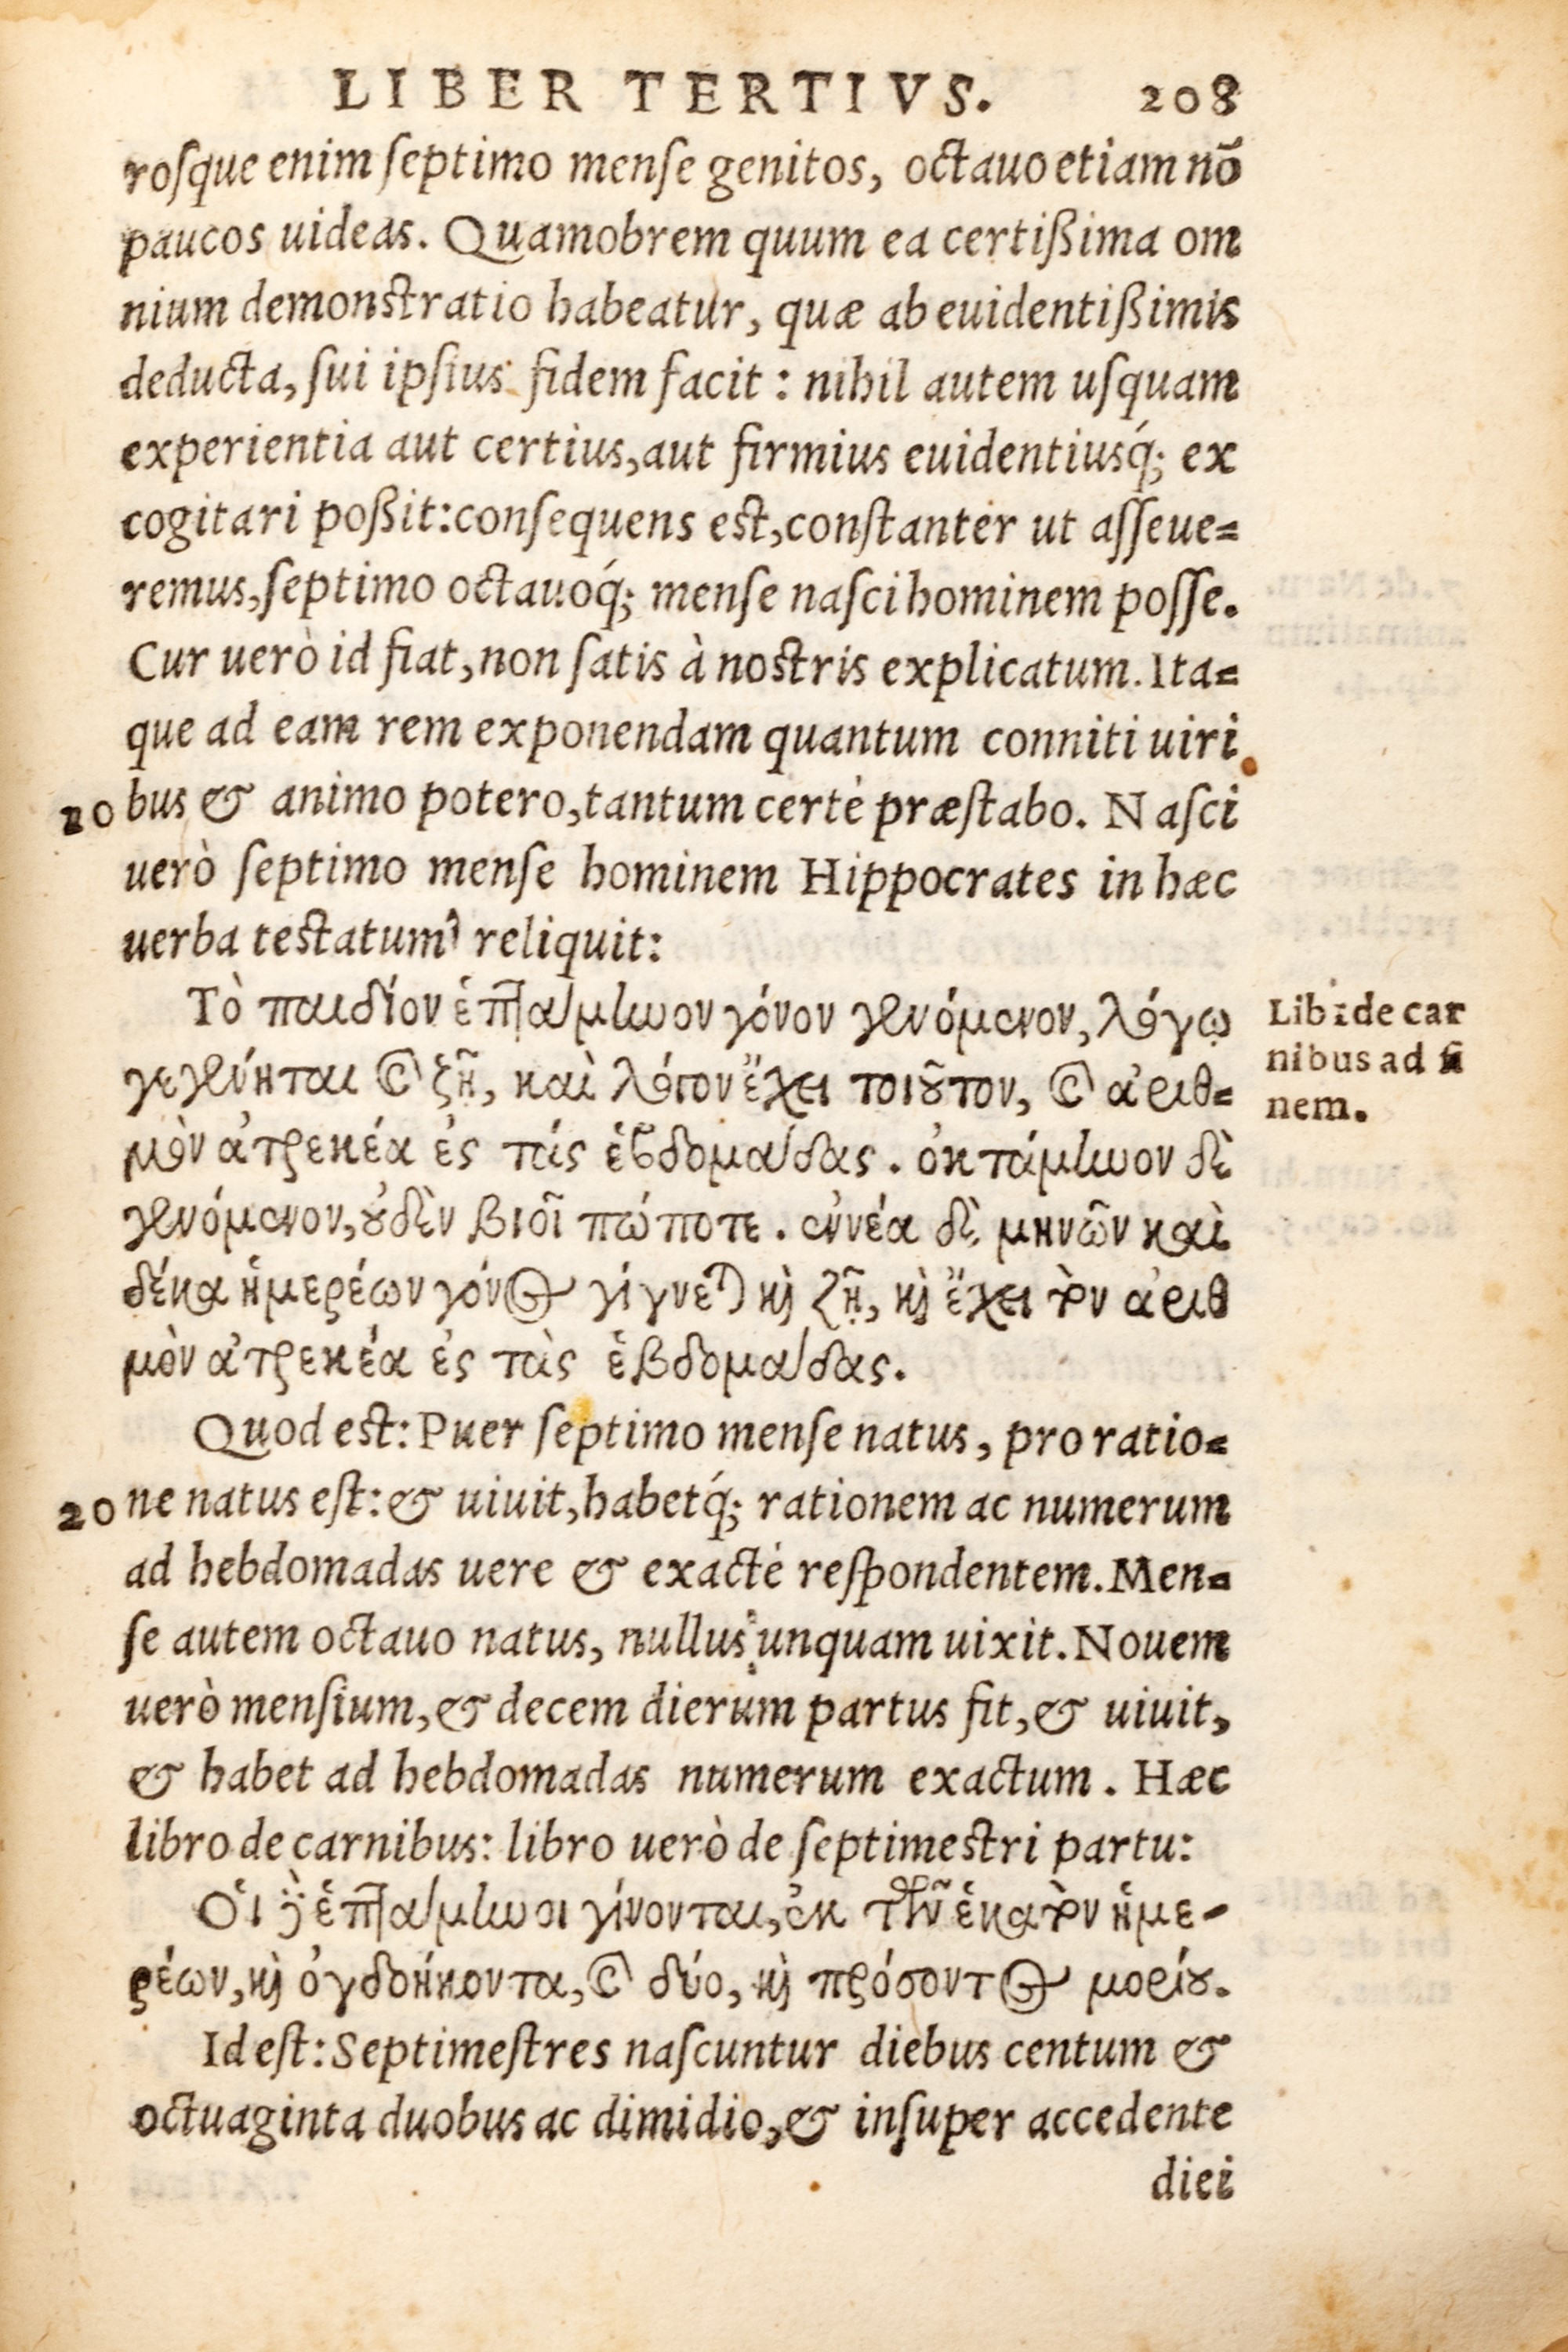 LIBER TERTIVS. 208
roſque enim ſeptimo menſe genitos, octauo etiam nõ
paucos uideas. Quamobrem quum ea certißima om
nium demonstratio habeatur, quæ ab euidentißimis
deducta, ſui ipſius fidem facit: nihil autem uſquam
experientia aut certius, aut firmius euidentiusq́; ex
cogitari poßit: conſequens est, conſtanter ut aſſeue=
remus, ſeptimo octauoq́; menſe naſci hominem poſſe.
Cur uerò id fiat, non ſatis à nostris explicatum. Ita=
que ad eam rem exponendam quantum conniti uiri
20 bus & animo potero, tantum certè præſtabo. Naſci
uerò ſeptimo menſe hominem Hippocrates in hæc
uerba testatum reliquit:
Τὸ παιδίον ἑπτάμηνον γόνον γενόμενον, λόγῳ
γεγένηται καὶ ζῇ, καὶ λόγον ἔχει τοιοῦτον, καὶ ἀριθ=
μὸν ἀτρεκέα ἐς τάς ἑβδομάδας. ὀκτάμηνον δὲ
γενόμενον, οὐδὲν βιοῖ πώποτε. ἐννέα δὲ μηνῶν καὶ
δέκα ἡμερέων γόνος γίγνεται καὶ ζῇ, καὶ ἔχει τὸν ἀριθ
μὸν ἀτρεκέα ἐς τὰς ἑβδομάδας.
Lib. de car
nibus ad fi
nem.
Quod est: Puer ſeptimo menſe natus, pro ratio=
20 ne natus eſt: & uiuit, habetq́; rationem ac numerum
ad hebdomadas uere & exactè reſpondentem. Men=
ſe autem octauo natus, nullus unquam uixit. Nouem
uerò menſium, & decem dierum partus fit, & uiuit,
& habet ad hebdomadas numerum exactum. Hæc
libro de carnibus: libro uerò de ſeptimestri partu:
Οἱ δὲ ἑπτάμηνοι γίνονται, ἐκ τῶν ἑκατὸν ἡμε-
ρέων, καὶ ὀγδοήκοντα, καὶ δύο, καὶ πρόσοντος μορίου.
Id eſt: Septimeſtres naſcuntur diebus centum &
octuaginta duobus ac dimidio, & inſuper accedente
diei